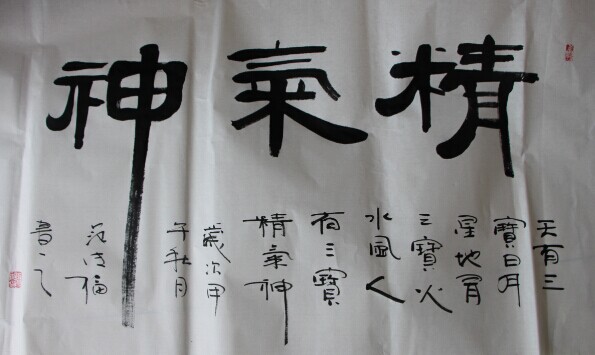 精氣神
天有三
寶日月
星地有
三寶火
水風人
有三寶
精氣神
歲次甲
午秋月
范福
書之